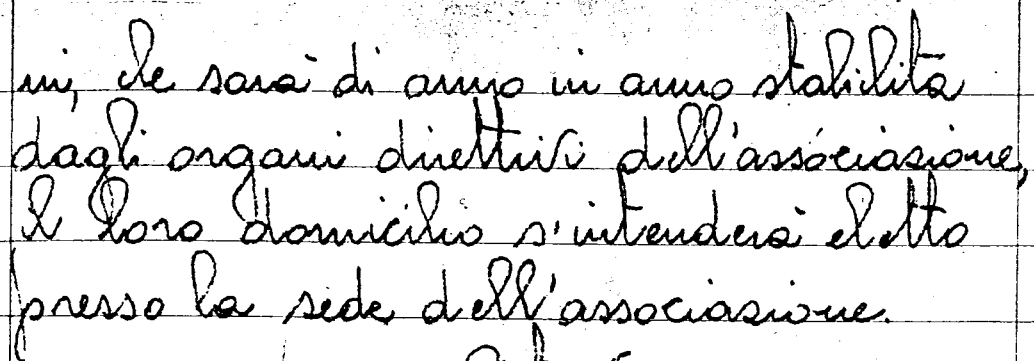 ni, che sarà di anno in anno stabilità
dagli organi direttivi dell'associazione,
il loro domicilio s'intenderà eletto
presso la sede dell'associazione.